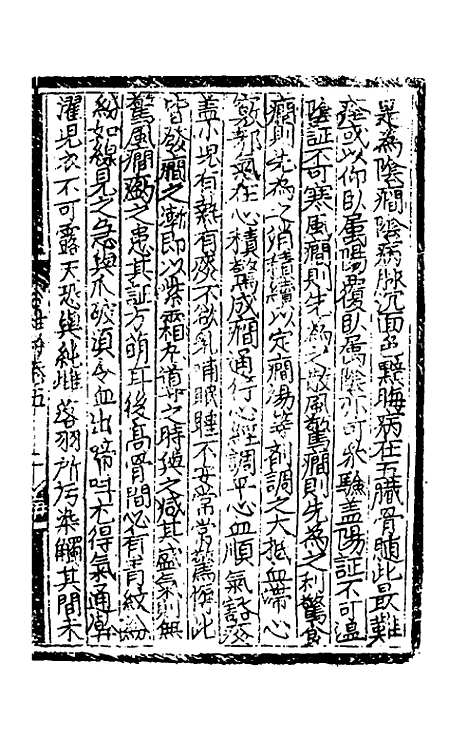 是為陰癇陰病脉沉面色黯晦病在五臟骨髓此最難
痊或以仰臥屬陽覆臥屬陰亦可參驗盖陽証不可温
陰証不可寒風癇則先為之散風驚癇則先為之利驚食
癇則先為之消積續以定癇湯等劑調之大抵血滯心
竅邪氣在心積驚成癇通行心經調平心血順氣豁痰
盖小兒有熱有痰不欲乳哺眠睡不安常常驚悸此
皆發癇之漸即以紫霜丸導之時時之減其盛氣則無
驚風癇之患其証方萌耳後高骨間必有青紋紛
紛如線見之急與爪破須令血出啼叫尤得氣通凣
濯兒衣不可露天恐與純雌落羽所污染觸其間未
卷五